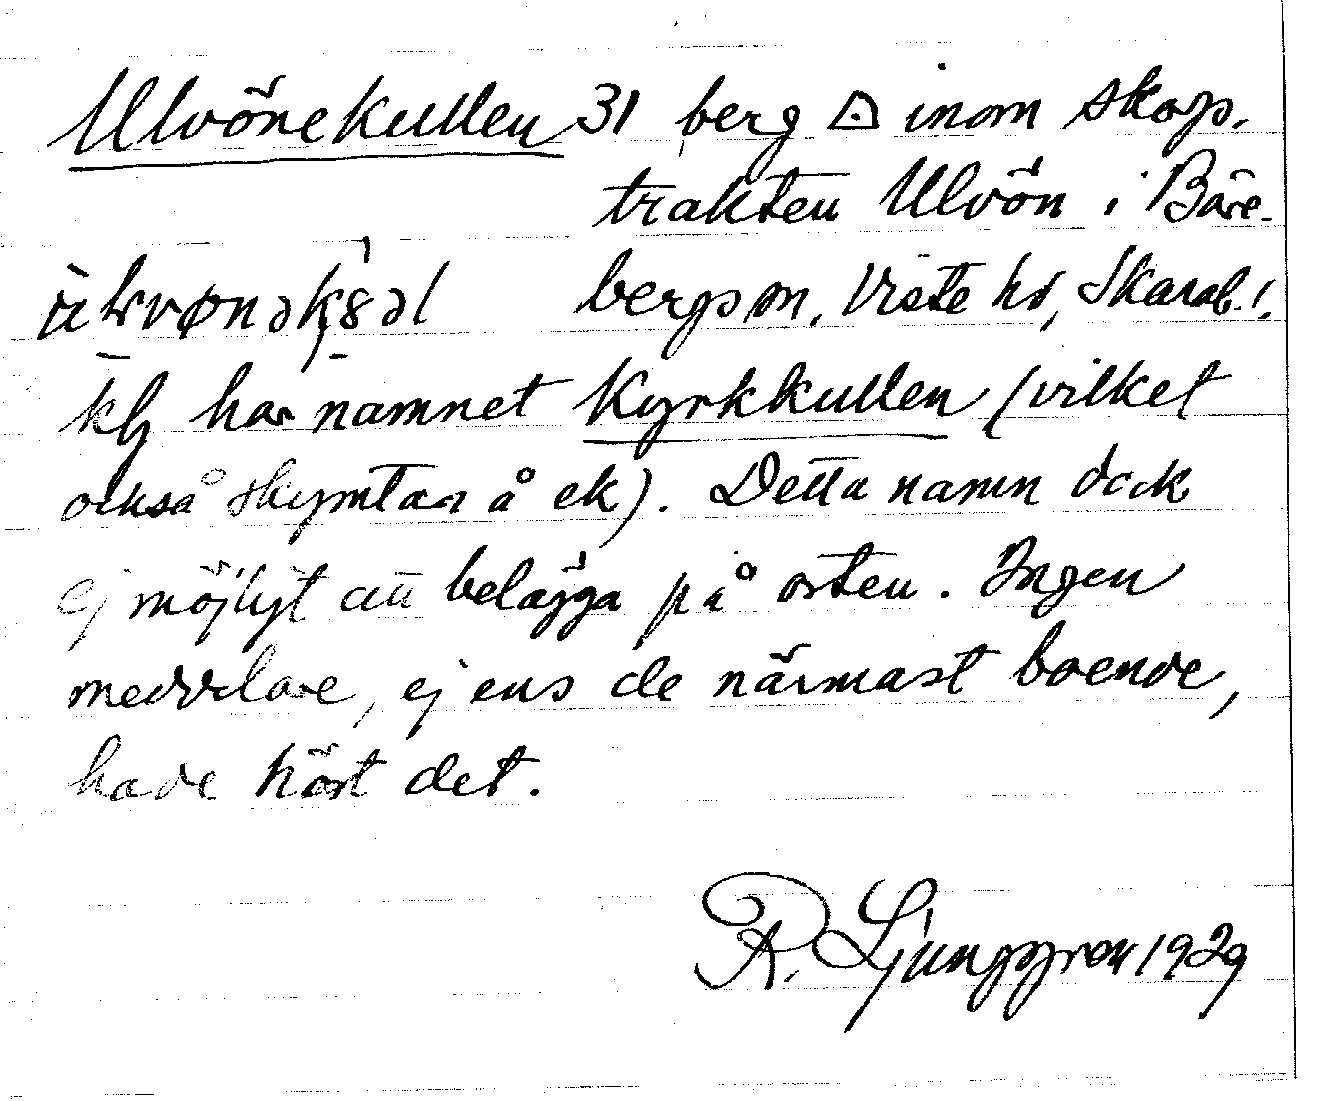 Ulvönekullen 31 berg inom skogs-
trakten Ulvön i Bäre-
bergs sn, Viste hd, Skarab. l.
klg har namnet Kyrkkullen (vilket
också skymtar å ek). Detta namn dock
ej möjligt att belägga på orten. Ingen
meddelare, ej ens de närmast boende,
hade hört det.
R. Ljunggren 1929